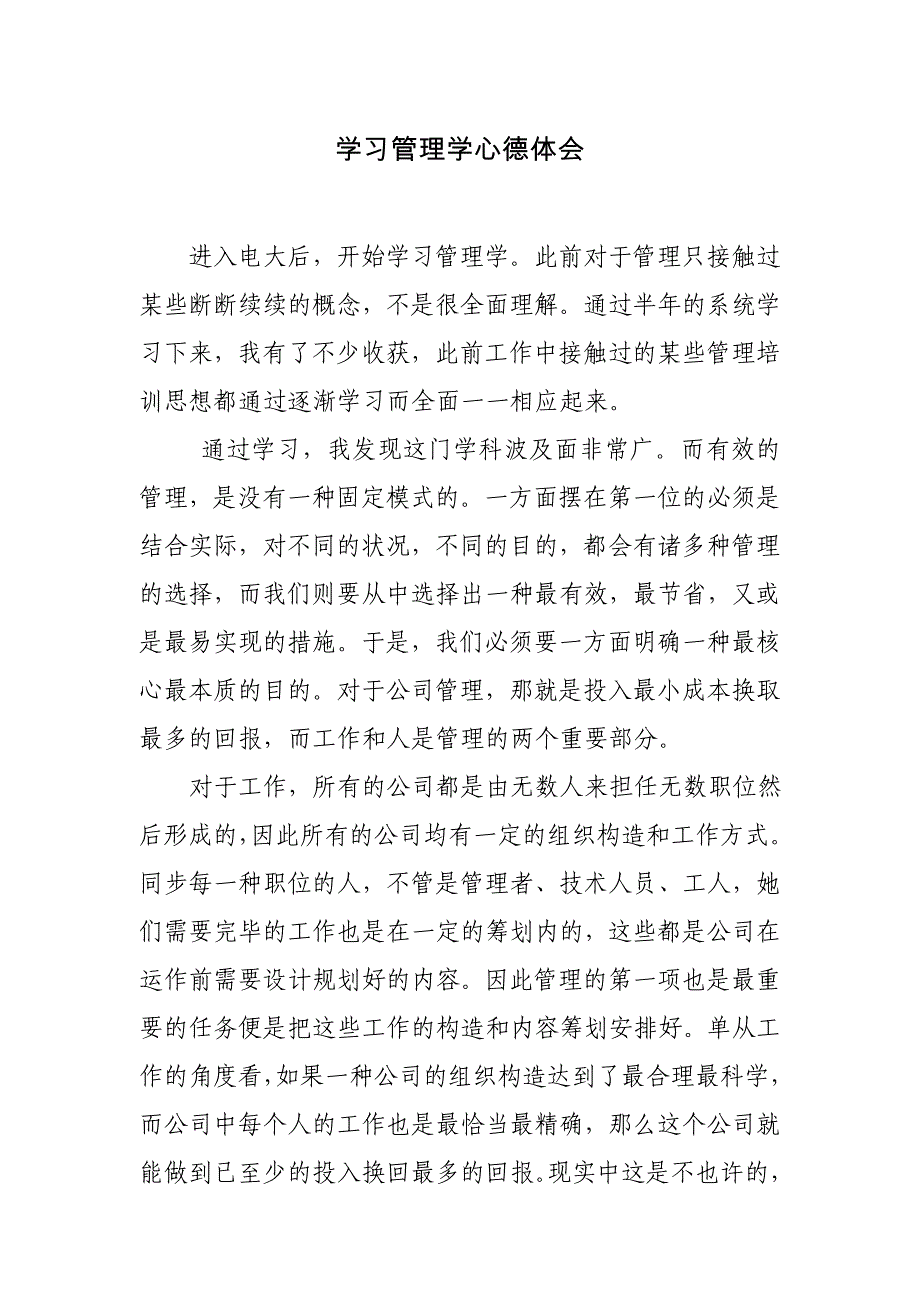 学习管理学心德体会
进入电大后，开始学习管理学。此前对于管理只接触过
某些断断续续的概念，不是很全面理解。通过半年的系统学
习下来，我有了不少收获，此前工作中接触过的某些管理培
训思想都通过逐渐学习而全面一一相应起来。
通过学习，我发现这门学科波及面非常广。而有效的
管理，是没有一种固定模式的。一方面摆在第一位的必须是
结合实际，对不同的状况，不同的目的，都会有诸多种管理
的选择，而我们则要从中选择出一种最有效，最节省，又或
是最易实现的措施。于是，我们必须要一方面明确一种最核
心最本质的目的。对于公司管理，那就是投入最小成本换取
最多的回报，而工作和人是管理的两个重要部分。
对于工作，所有的公司都是由无数人来担任无数职位然
后形成的，因此所有的公司均有一定的组织构造和工作方式。
同步每一种职位的人，不管是管理者、技术人员、工人，她
们需要完毕的工作也是在一定的筹划内的，这些都是公司在
运作前需要设计规划好的内容。因此管理的第一项也是最重
要的任务便是把这些工作的构造和内容筹划安排好。单从工
作的角度看，如果一种公司的组织构造达到了最合理最科学，
而公司中每个人的工作也是最恰当最精确，那么这个公司就
能做到已至少的投入换回最多的回报。现实中这是不也许的，